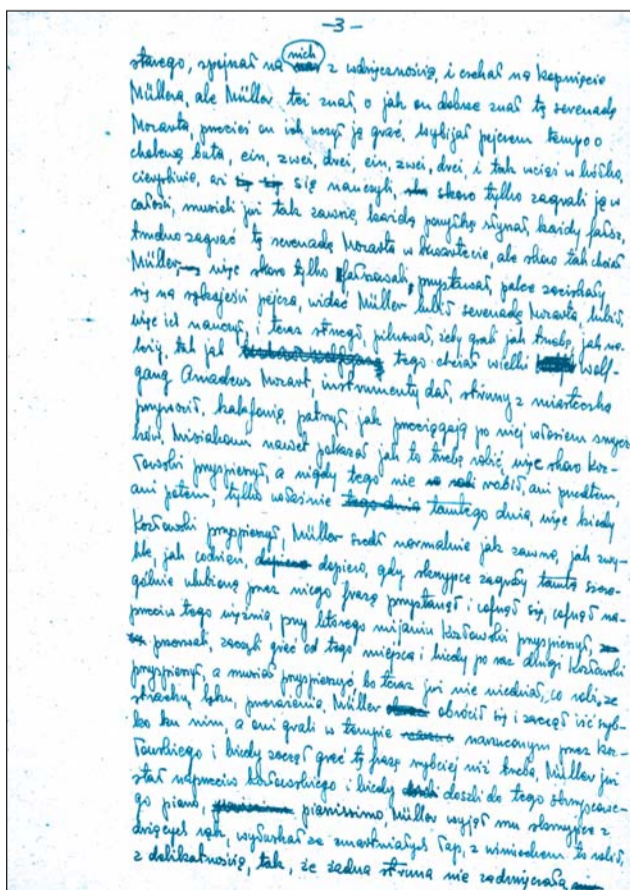 -3-
starego, spojrzał na nich z wdzięcznością, i czekał na kopnięcie
Müllera, ale Müller też znał, o jak on dobrze znał tę serenadę
Mozarta, przecież on ich uczył ją grać, wybijał pejczem tempo o
cholewę buta, ein, zwei, drei, ein, zwei, drei, i tak wciąż w kółko,
cierpliwie, aż się nauczyli, skoro tylko zagrali ją w
całości, musieli już tak zawsze, każdą pomyłkę słyszał, każdy fałsz,
trudno zagrać tę serenadę Mozarta w kwartecie, ale skoro tak chciał
Müller, więc skoro tylko fałszowali, przystawał, palce zaciskały
się na rękojeści pejcza, widać Müller lubił serenadę Mozarta, lubił,
więc ich nauczył, i teraz strzegł, pilnował, żeby grali jak trzeba, jak
tak jak tego chciał wielki Wolf-
gang Amadeus Mozart, instrumenty dał, struny z miasteczka
przynosił, kalafonię, patrzył, jak przeciągają po niej włosiem smycz-
ków, Misiakowi nawet pokazał jak to trzeba robić, więc skoro Koz-
łowski przyspieszył, a nigdy tego nie robił, ani przedtem,
ani potem, tylko właśnie tamtego dnia, więc kiedy
Kozłowski przyspieszył, Müller szedł normalnie jak zawsze, jak zwy-
kle, jak codzień, dopiero, gdy skrzypce zagrały tamtą szcze-
gólnie ulubioną przez niego frazę przystanął i cofnął się, cofnął na-
przeciw tego więźnia, przy którego mijaniu Kozłowski przyspieszył,
przerwali, zaczęli grać od tego miejsca i kiedy po raz drugi Kozłowski
przyspieszył, a musiał przyspieszyć, bo teraz już nie wiedział, co robi, ze
strachu, lęku, przerażenia, Müller obrócił się i zaczął iść szyb-
ko ku nim, a oni grali w tempie narzuconym przez Koz-
łowskiego i kiedy zaczął grać tę frazę szybciej niż trzeba, Müller już
stał naprzeciw Kozłowskiego i kiedy doszli do tego skrzypcowe-
go piano, pianissimo, Müller wyjął mu skrzypce z
drżących rąk, wyłuskał ze zmartwiałych łap, z uśmiechem to robił,
z delikatnością, tak, że żadna struna nie zadźwięczała